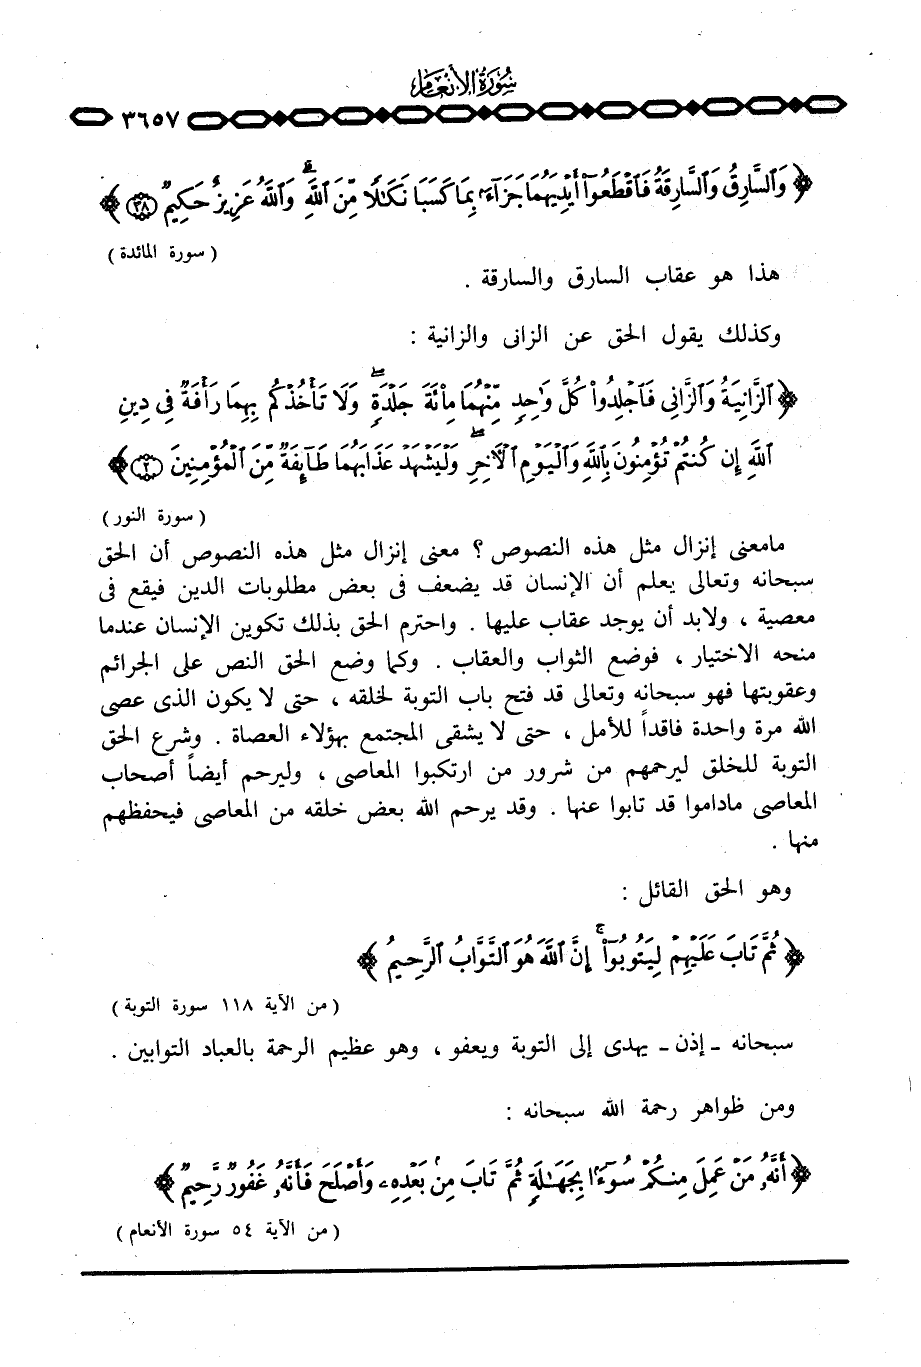 سُورَةُ الأَنْعَامِ
٣٦٥٧
﴿ وَٱلسَّارِقُ وَٱلسَّارِقَةُ فَٱقْطَعُوٓا۟ أَيْدِيَهُمَا جَزَآءًۢ بِمَا كَسَبَا نَكَٰلًا مِّنَ ٱللَّهِ ۗ وَٱللَّهُ عَزِيزٌ حَكِيمٌ ﴿٣٨﴾ ﴾
( سورة المائدة )
هذا هو عقاب السارق والسارقة .
وكذلك يقول الحق عن الزانى والزانية :
﴿ ٱلزَّانِيَةُ وَٱلزَّانِى فَٱجْلِدُوا۟ كُلَّ وَٰحِدٍ مِّنْهُمَا مِا۟ئَةَ جَلْدَةٍ ۖ وَلَا تَأْخُذْكُم بِهِمَا رَأْفَةٌ فِى دِينِ
ٱللَّهِ إِن كُنتُمْ تُؤْمِنُونَ بِٱللَّهِ وَٱلْيَوْمِ ٱلْآخِرِ ۖ وَلْيَشْهَدْ عَذَابَهُمَا طَآئِفَةٌ مِّنَ ٱلْمُؤْمِنِينَ ﴿٢﴾ ﴾
( سورة النور )
مامعنى إنزال مثل هذه النصوص ؟ معنى إنزال مثل هذه النصوص أن الحق
سبحانه وتعالى يعلم أن الإنسان قد يضعف فى بعض مطلوبات الدين فيقع فى
معصية ، ولابد أن يوجد عقاب عليها . واحترم الحق بذلك تكوين الإنسان عندما
منحه الاختيار ، فوضع الثواب والعقاب . وكما وضع الحق النص على الجرائم
وعقوبتها فهو سبحانه وتعالى قد فتح باب التوبة لخلقه ، حتى لا يكون الذى عصى
الله مرة واحدة فاقداً للأمل ، حتى لا يشقى المجتمع بهؤلاء العصاة . وشرع الحق
التوبة للخلق ليرحمهم من شرور من ارتكبوا المعاصى ، وليرحم أيضاً أصحاب
المعاصى ماداموا قد تابوا عنها . وقد يرحم الله بعض خلقه من المعاصى فيحفظهم
منها .
وهو الحق القائل :
﴿ ثُمَّ تَابَ عَلَيْهِمْ لِيَتُوبُوٓا۟ ۚ إِنَّ ٱللَّهَ هُوَ ٱلتَّوَّابُ ٱلرَّحِيمُ ﴾
( من الآية ١١٨ سورة التوبة )
سبحانه ـ إذن ـ يهدى إلى التوبة ويعفو ، وهو عظيم الرحمة بالعباد التوابين .
ومن ظواهر رحمة الله سبحانه :
﴿ أَنَّهُۥ مَنْ عَمِلَ مِنكُمْ سُوٓءًۢا بِجَهَٰلَةٍ ثُمَّ تَابَ مِنۢ بَعْدِهِۦ وَأَصْلَحَ فَأَنَّهُۥ غَفُورٌ رَّحِيمٌ ﴾
( من الآية ٥٤ سورة الأنعام )